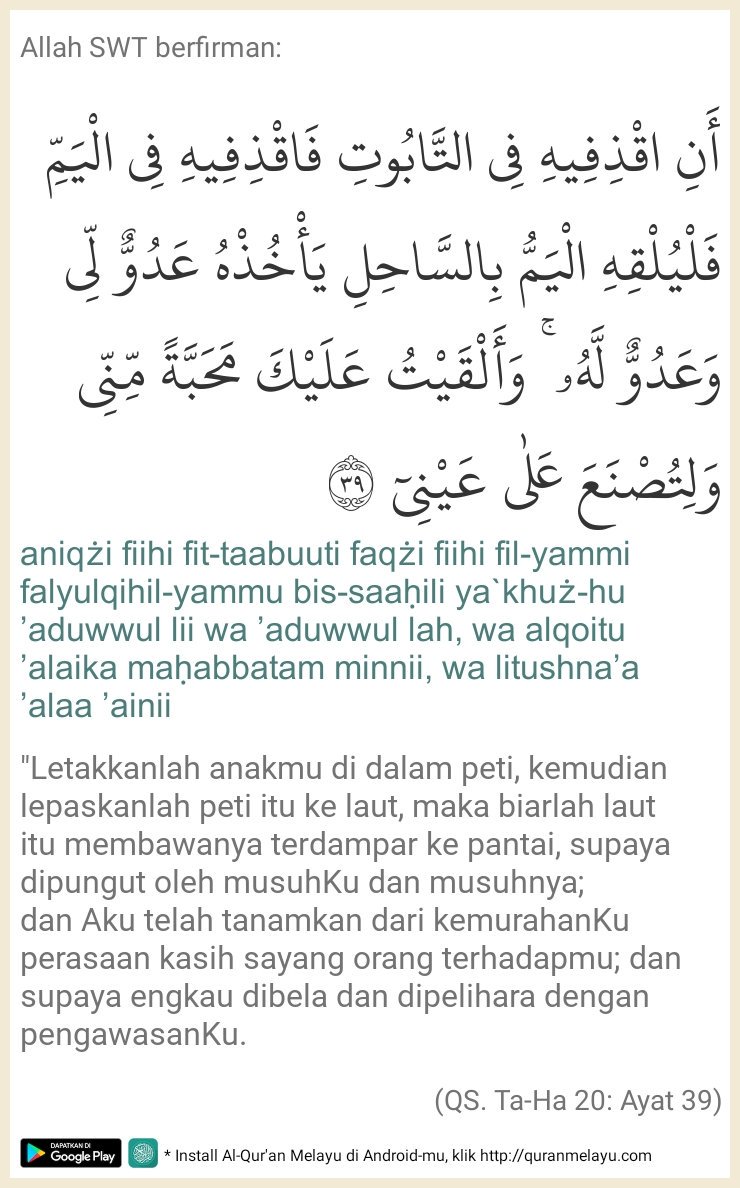 Allah SWT berfirman:
أَنِ اقْذِفِيهِ فِى التَّابُوتِ فَاقْذِفِيهِ فِى الْيَمِّ
فَلْيُلْقِهِ الْيَمُّ بِالسَّاحِلِ يَأْخُذْهُ عَدُوٌّ لِّى
وَعَدُوٌّ لَّهُۥ ۚ وَأَلْقَيْتُ عَلَيْكَ مَحَبَّةً مِّنِّى
وَلِتُصْنَعَ عَلٰى عَيْنِىٓ ﴿٣٩﴾
aniqżi fiihi fit-taabuuti faqżi fiihi fil-yammi
falyulqihil-yammu bis-saaḥili ya`khuż-hu
’aduwwul lii wa ’aduwwul lah, wa alqoitu
’alaika maḥabbatam minnii, wa litushna’a
’alaa ’ainii
"Letakkanlah anakmu di dalam peti, kemudian
lepaskanlah peti itu ke laut, maka biarlah laut
itu membawanya terdampar ke pantai, supaya
dipungut oleh musuhKu dan musuhnya;
dan Aku telah tanamkan dari kemurahanKu
perasaan kasih sayang orang terhadapmu; dan
supaya engkau dibela dan dipelihara dengan
pengawasanKu.
(QS. Ta-Ha 20: Ayat 39)
DAPATKAN DI
Google Play
* Install Al-Qur'an Melayu di Android-mu, klik http://quranmelayu.com